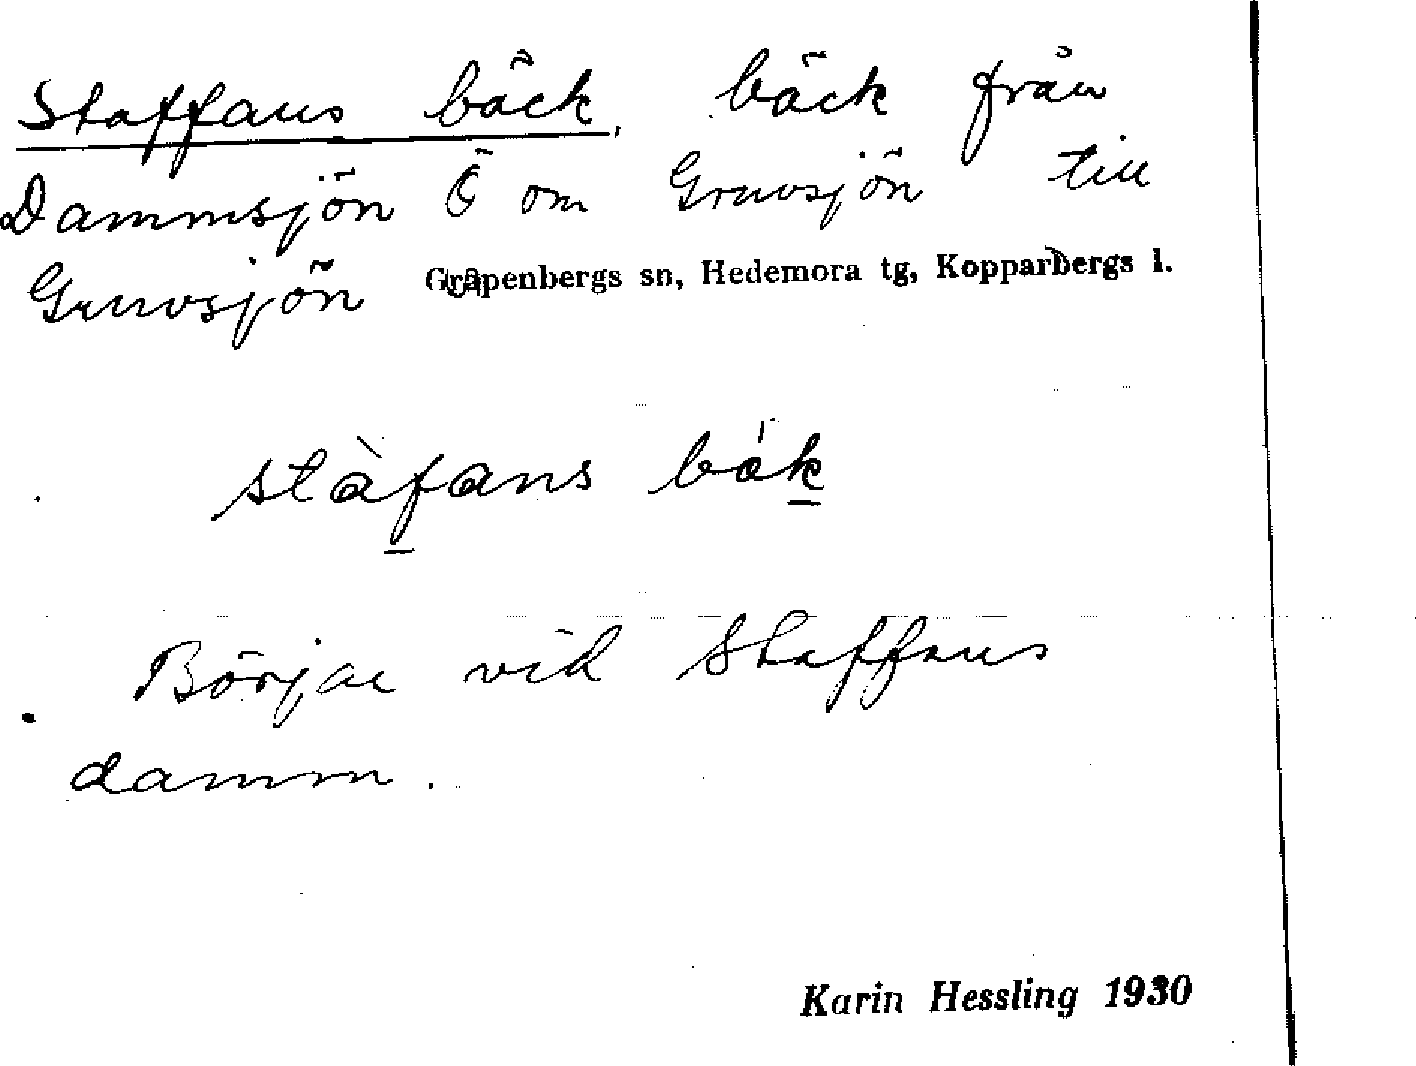 Staffans bäck, bäck från
Dammsjön Ö om Gruvsjön till
Gruvsjön Grapenbergs sn, Hedemora tg, Kopparbergs l.
stàfans bák
Börjar vid Staffans
damm.
Karin Hessling 1930